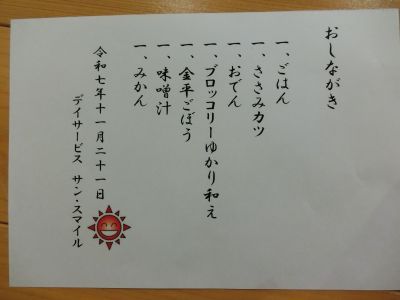 おしながき
一、ごはん
一、ささみカツ
一、おでん
一、ブロッコリーゆかり和え
一、金平ごぼう
一、味噌汁
一、みかん
令和七年十一月二十一日
デイサービス サン・スマイル